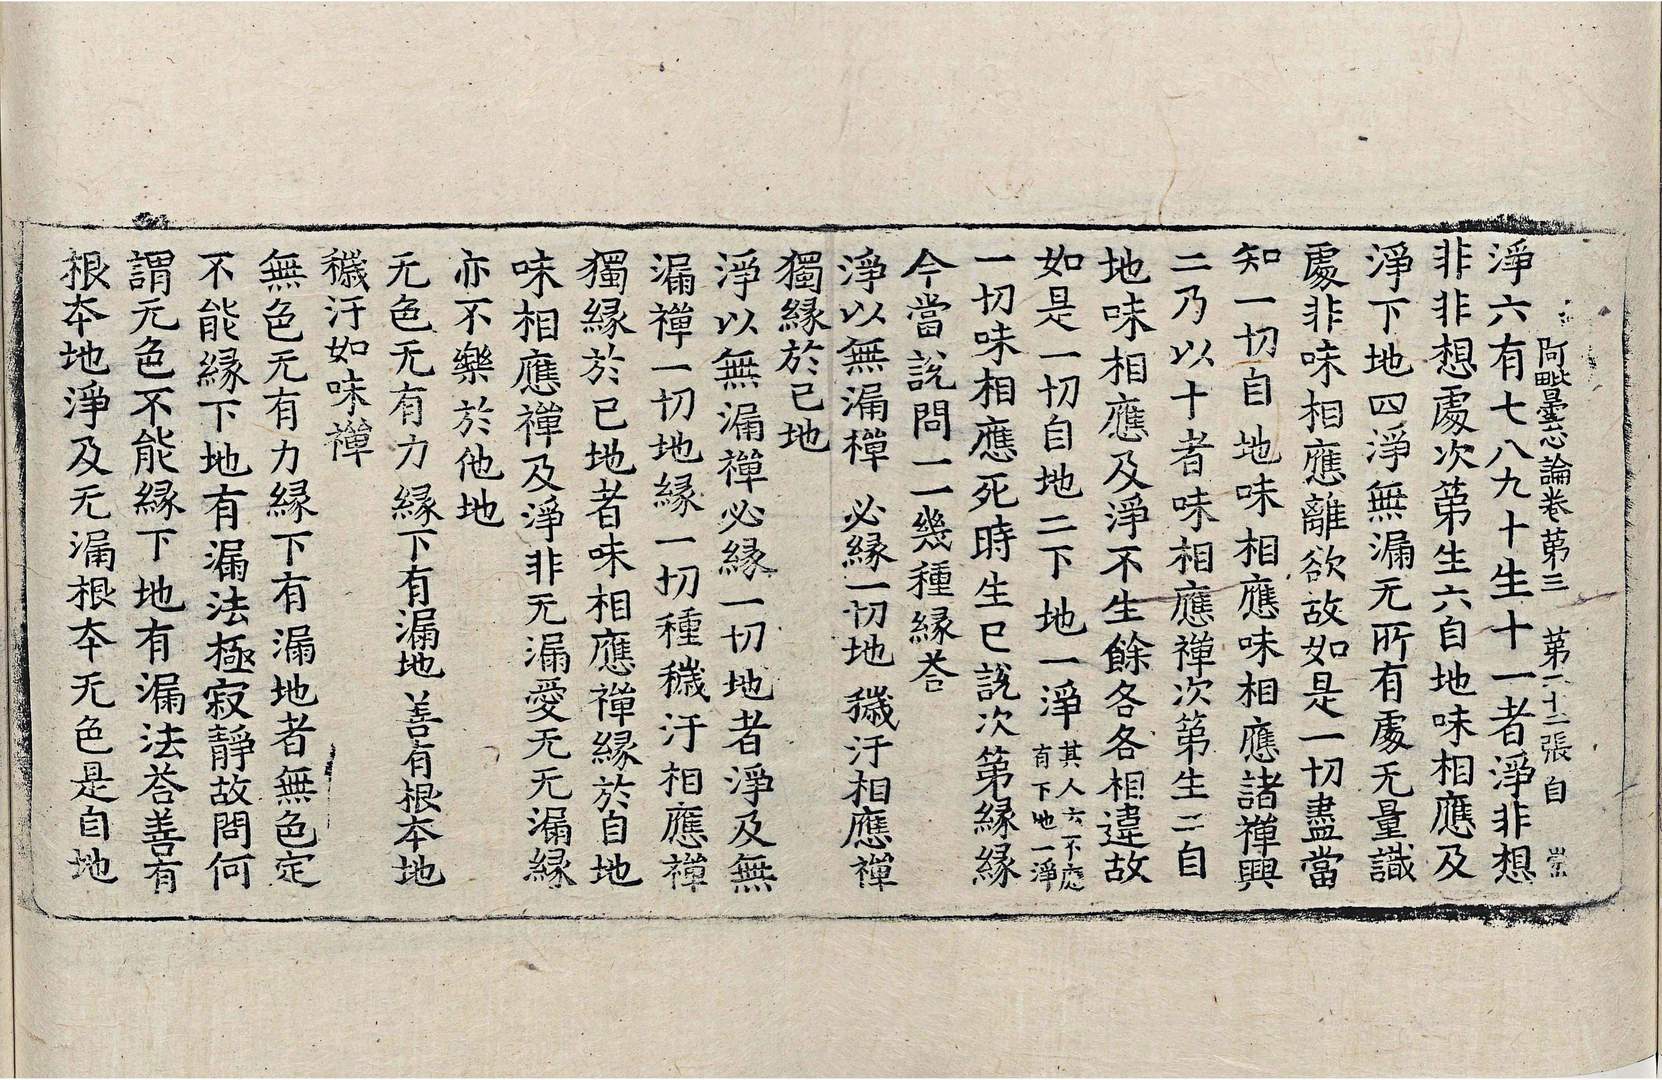 阿毗曇心論卷第三　第二十二張　自　崇
淨六有七八九十生十一者淨非想
非非想處次第生六自地味相應及
淨下地四淨無漏无所有處无量識
處非味相應離欲故如是一切盡當
知一切自地味相應味相應諸禪興
二乃以十者味相應禪次第生二自
地味相應及淨不生餘各各相違故
如是一切自地二下地一淨其人亦不應有下地一淨
一切味相應死時生已說次第緣緣
今當說問一一幾種緣荅
淨以無漏禪　必緣一切地　穢汙相應禪
獨緣於已地
淨以無漏禪必緣一切地者淨及無
漏禪一切地緣一切種穢汙相應禪
獨緣於已地者味相應禪緣於自地
味相應禪及淨非无漏愛无无漏緣
亦不樂於他地
无色无有力　緣下有漏地　善有根本地
穢汙如味禪
無色无有力緣下有漏地者無色定
不能緣下地有漏法極寂靜故問何
謂无色不能緣下地有漏法荅善有
根本地淨及无漏根本无色是自地